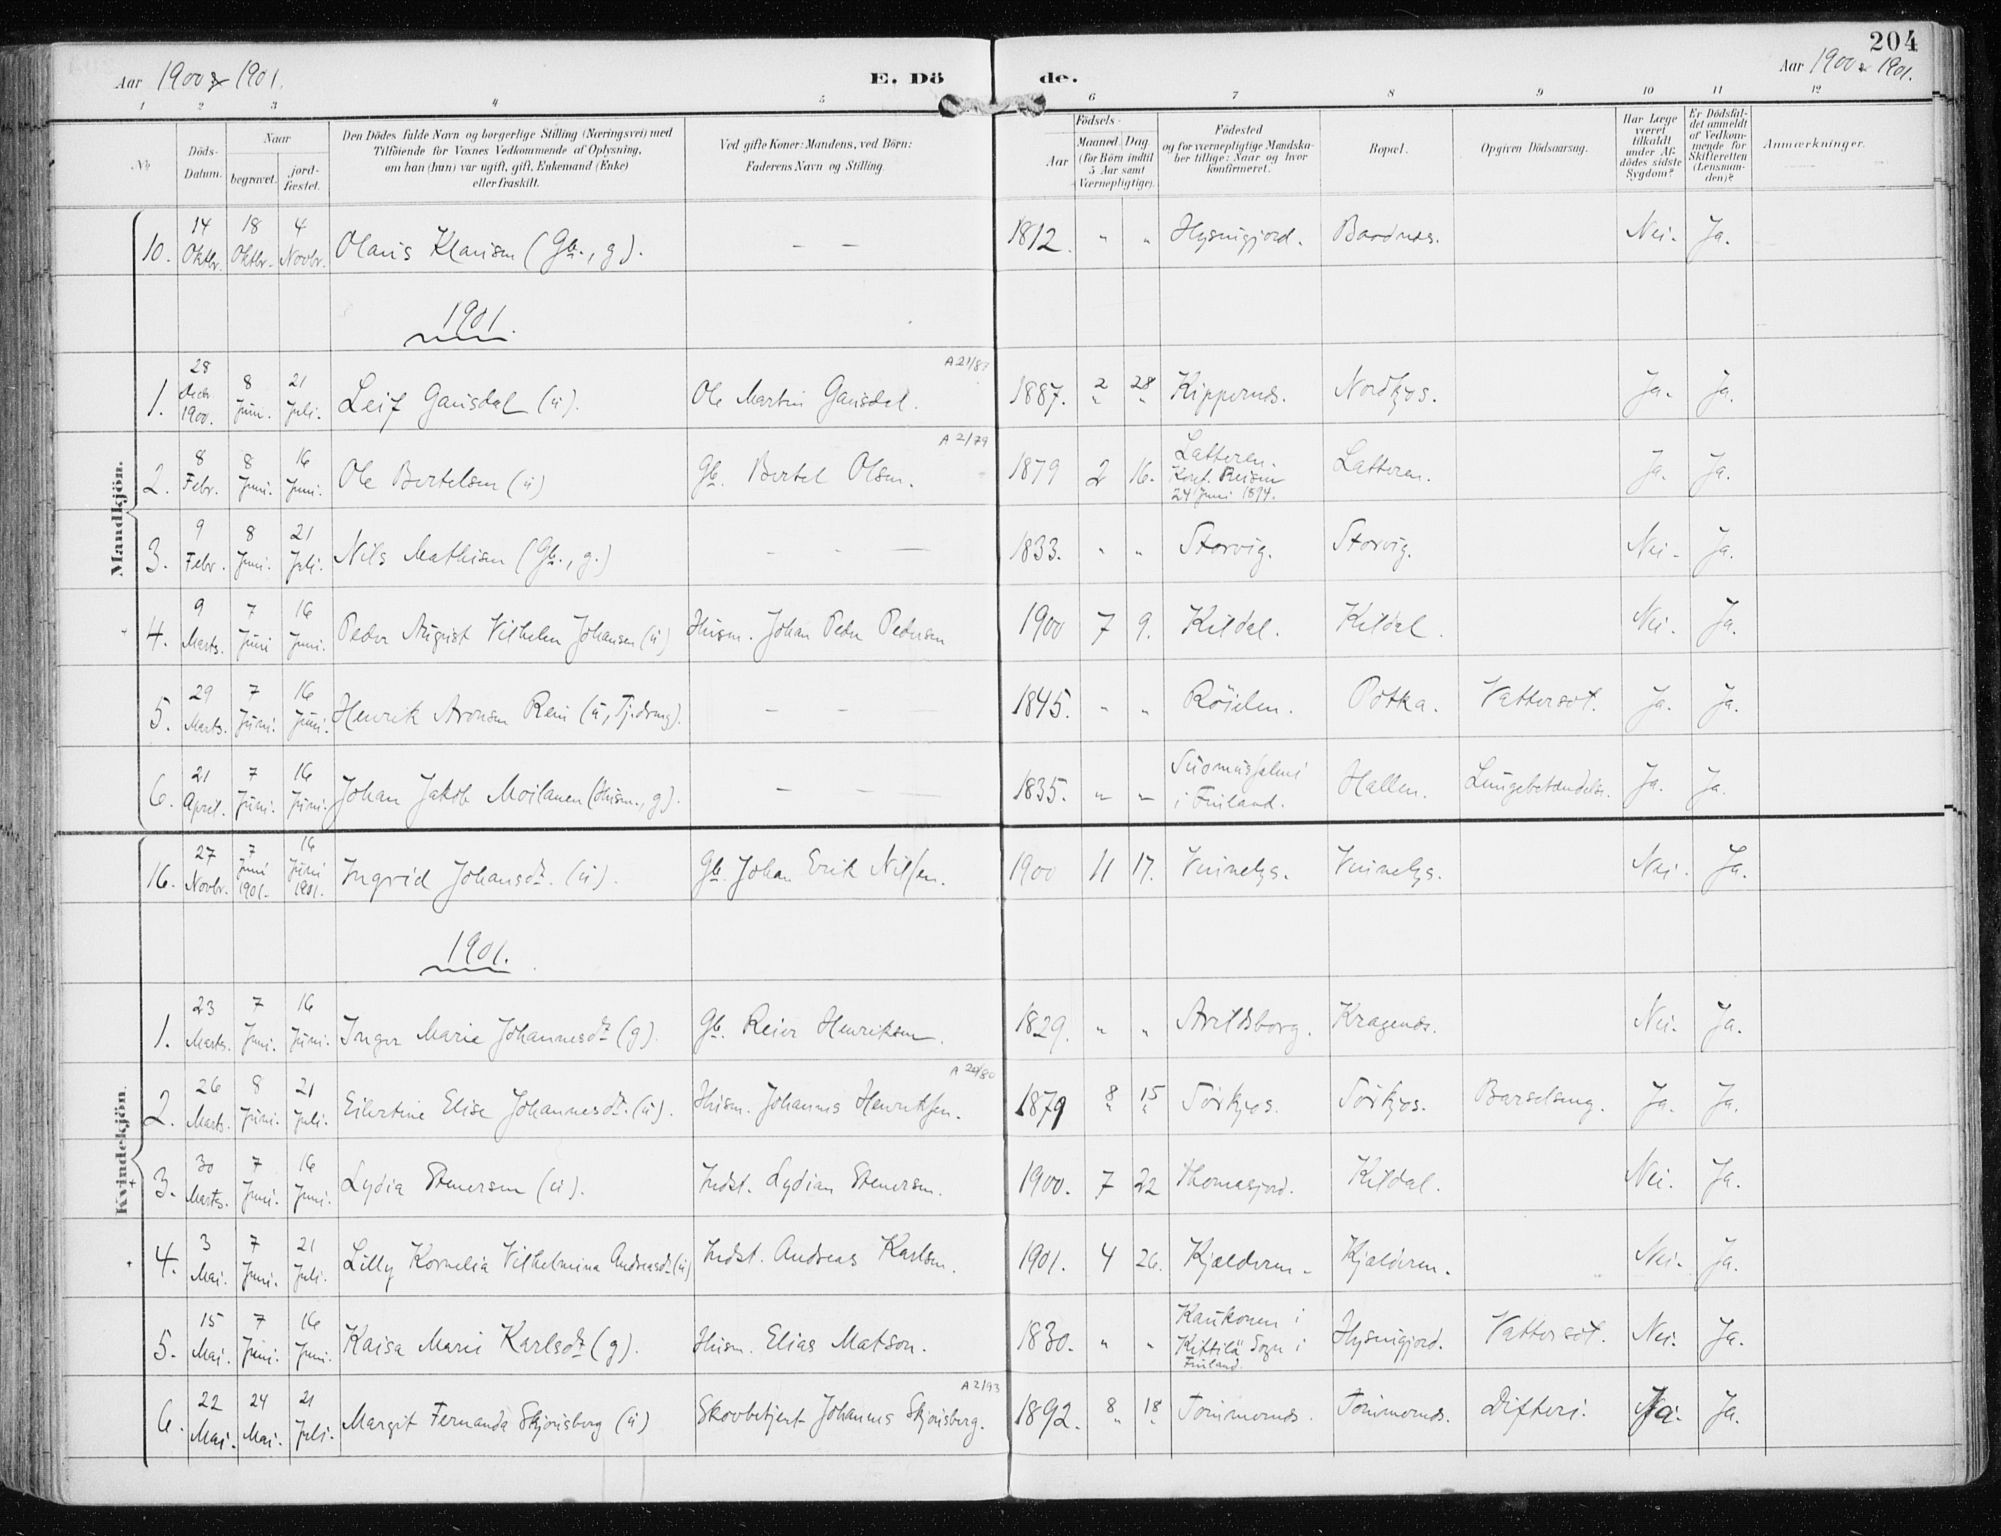 204
Aar 1900 & 1901.
E. Döde.
Aar 1900 & 1901.
1 2 3 4 5 6 7 8 9 10 11 12
No.
Döds-Datum.
Naar
begravet.
jord-fæstet.
Den Dödes fulde Navn og borgerlige Stilling (Næringsvei) med
Tilföiende for Voxnes Vedkommende af Oplysning,
om han (hun) var ugift, gift, Enkemand (Enke)
eller fraskilt.
Ved gifte Koner: Mandens, ved Börn:
Faderens Navn og Stilling.
Födsels-
Aar
Maaned. Dag.
(for Börn indtil
5 Aar samt
Værnepligtige).
Födested
og for værnepligtige Mandskaber tillige: Naar og hvor
konfirmeret.
Bopæl.
Opgiven Dödsaarsag.
Har Læge
været
tilkaldt
under Afdödes sidste
Sygdom?
Er Dödsfaldet anmeldt
af Vedkommende for
Skifteretten
(Lensmanden)?
Anmærkninger.
Mandkjön.
10. 14 Oktbr. 18 Oktbr. 4 Novbr. Olaus Klausen (Gb., g). — — 1812. " " Hysingjord. Baadnes. Nei. Ja.
1901.
1. 28 Decbr. 1900. 8 Juni. 21 Juli. Leif Gausdal (ü). Ole Martin Gausdal. A 21/87 1887. 2 28 Kippernes. Nordkjos. Ja. Ja.
2. 8 Febr. 8 Juni. 16 Juni. Ole Bertelsen (ü) Gb. Bertel Olsen. A 2/79 1879 2 16. Latteren. Konf. Reisen 24 Juni 1894. Latteren. Ja. Ja.
3. 9 Febr. 8 Juni. 21 Juli. Nils Mathisen (Gb., g.) — — — 1833. " " Storvig. Storvig. Nei. Ja.
4. 9 Marts. 7 Juni 16 Juni. Peder August Vilhelm Johansen (ü) Husm. Johan Peder Pedersen 1900 7 9. Kildal. Kildal. Nei. Ja.
5. 29 Marts. 7 Juni. 16 Juni. Henrik Aronsen Rein (ü, Tjdrng). — — — 1845. " " Röielen. Potka. Vattersot. Ja. Ja.
6. 21 April. 7 Juni. 16 Juni. Johan Jakob Moilanen (Husm., g). — — — 1835. " " Suomussalmi i Finland. Hallen. Lungebetændelse. Ja. Ja.
Kvindekjön.
16. 27 Novbr. 7 Juni 1901. 16 Juni 1901. Ingrid Johansdt. (ü). Gb. Johan Erik Nilsen. 1900 11 17. Vinnelys. Vinnelys. Nei. Ja.
1901.
1. 23 Marts. 7 Juni. 16 Juni. Inger Marie Johannesdt (g). Gb. Reier Henriksen. 1829. " " Arildsborg. Kragenes. Nei. Ja.
2. 26 Marts. 8 Juni. 21 Juli. Eilertine Elise Johannesdt. (ü). Husm. Johannes Henriksen. A 20/80 1879 8 15 Sörkjos. Sörkjos. Barselseng. Ja. Ja.
3. 30 Marts. 7 Juni. 16 Juni. Lydia Stenersen (ü). Indst. Lydian Stenersen. 1900. 7 22 Thomasjord. Kildal. Nei. Ja.
4. 3 Mai. 7 Juni. 21 Juli. Lilly Kornelia Vilhelmina Andreasdt (ü) Indst. Andreas Karlsen. 1901. 4 26. Kjælderen. Kjælderen. Nei. Ja.
5. 15 Mai. 7 Juni. 16 Juni. Kaisa Marie Karlsdt (g). Husm. Elias Matson. 1830. " " Kaukonen i Kittilä Sogn i Finland. Hysingjord. Vattersot. Nei. Ja.
6. 22 Mai. 24 Mai. 21 Juli. Margit Fernanda Skjönsberg (ü) Skovbetjent Johannes Skjönsberg. A 2/93 1892. 8 18 Tömmernes. Tömmernes. Difteri. Ja. Ja.